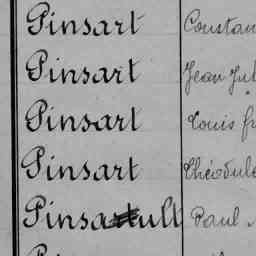 Pinsart Constan
Pinsart Jean Jul
Pinsart Louis fr
Pinsart Théodule
Pinsault Paul